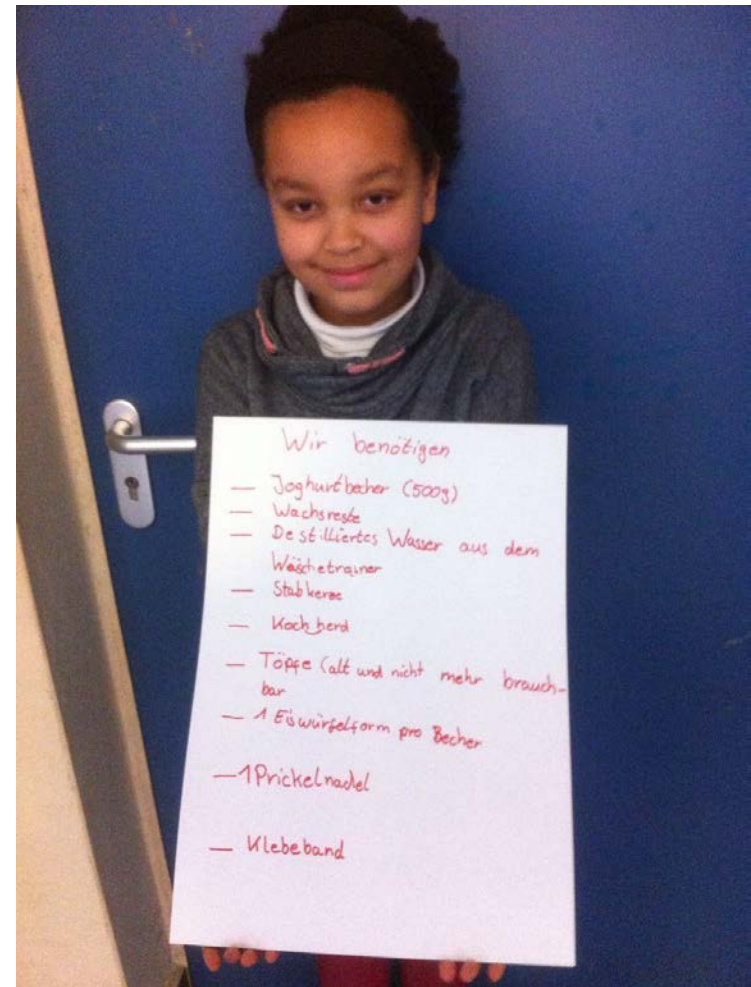 Wir benötigen
— Joghurtbecher (500g)
— Wachsreste
— Destilliertes Wasser aus dem
Wäschetrainer
— Stabkerze
— Kochherd
— Töpfe (alt und nicht mehr brauch-
bar
— 1 Eiswürfelform pro Becher
— 1 Prickelnadel
— Klebeband